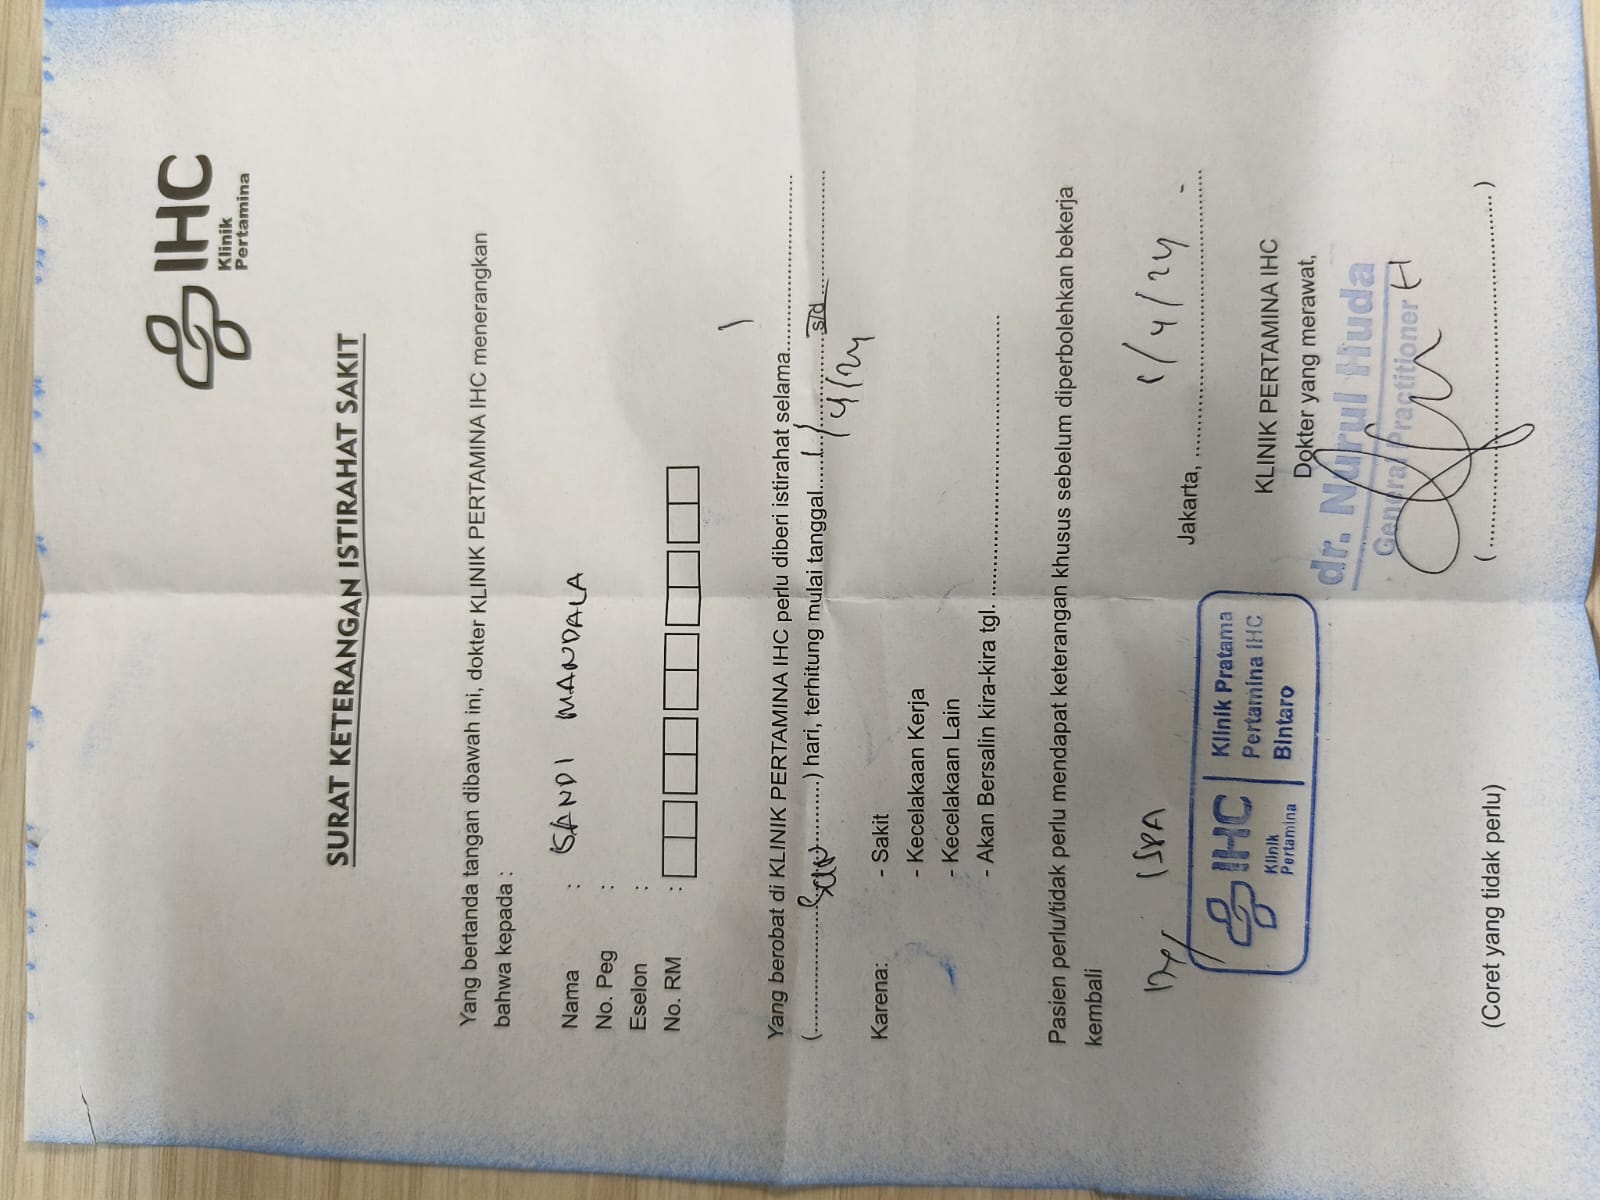 IHC
Klinik
Pertamina
SURAT KETERANGAN ISTIRAHAT SAKIT
Yang bertanda tangan dibawah ini, dokter KLINIK PERTAMINA IHC menerangkan
bahwa kepada :
Nama : SANDI MANDALA
No. Peg :
Eselon :
No. RM :
Yang berobat di KLINIK PERTAMINA IHC perlu diberi istirahat selama
(....................) hari, terhitung mulai tanggal 1/4/24 s/d
Karena: - Sakit
- Kecelakaan Kerja
- Kecelakaan Lain
- Akan Bersalin kira-kira tgl.
Pasien perlu/tidak perlu mendapat keterangan khusus sebelum diperbolehkan bekerja
kembali
ISPA
Jakarta, 1/4/24
IHC
Klinik
Pertamina
Klinik Pratama
Pertamina IHC
Bintaro
KLINIK PERTAMINA IHC
Dokter yang merawat,
dr. Nurul Huda
General Practitioner
(....................)
(Coret yang tidak perlu)